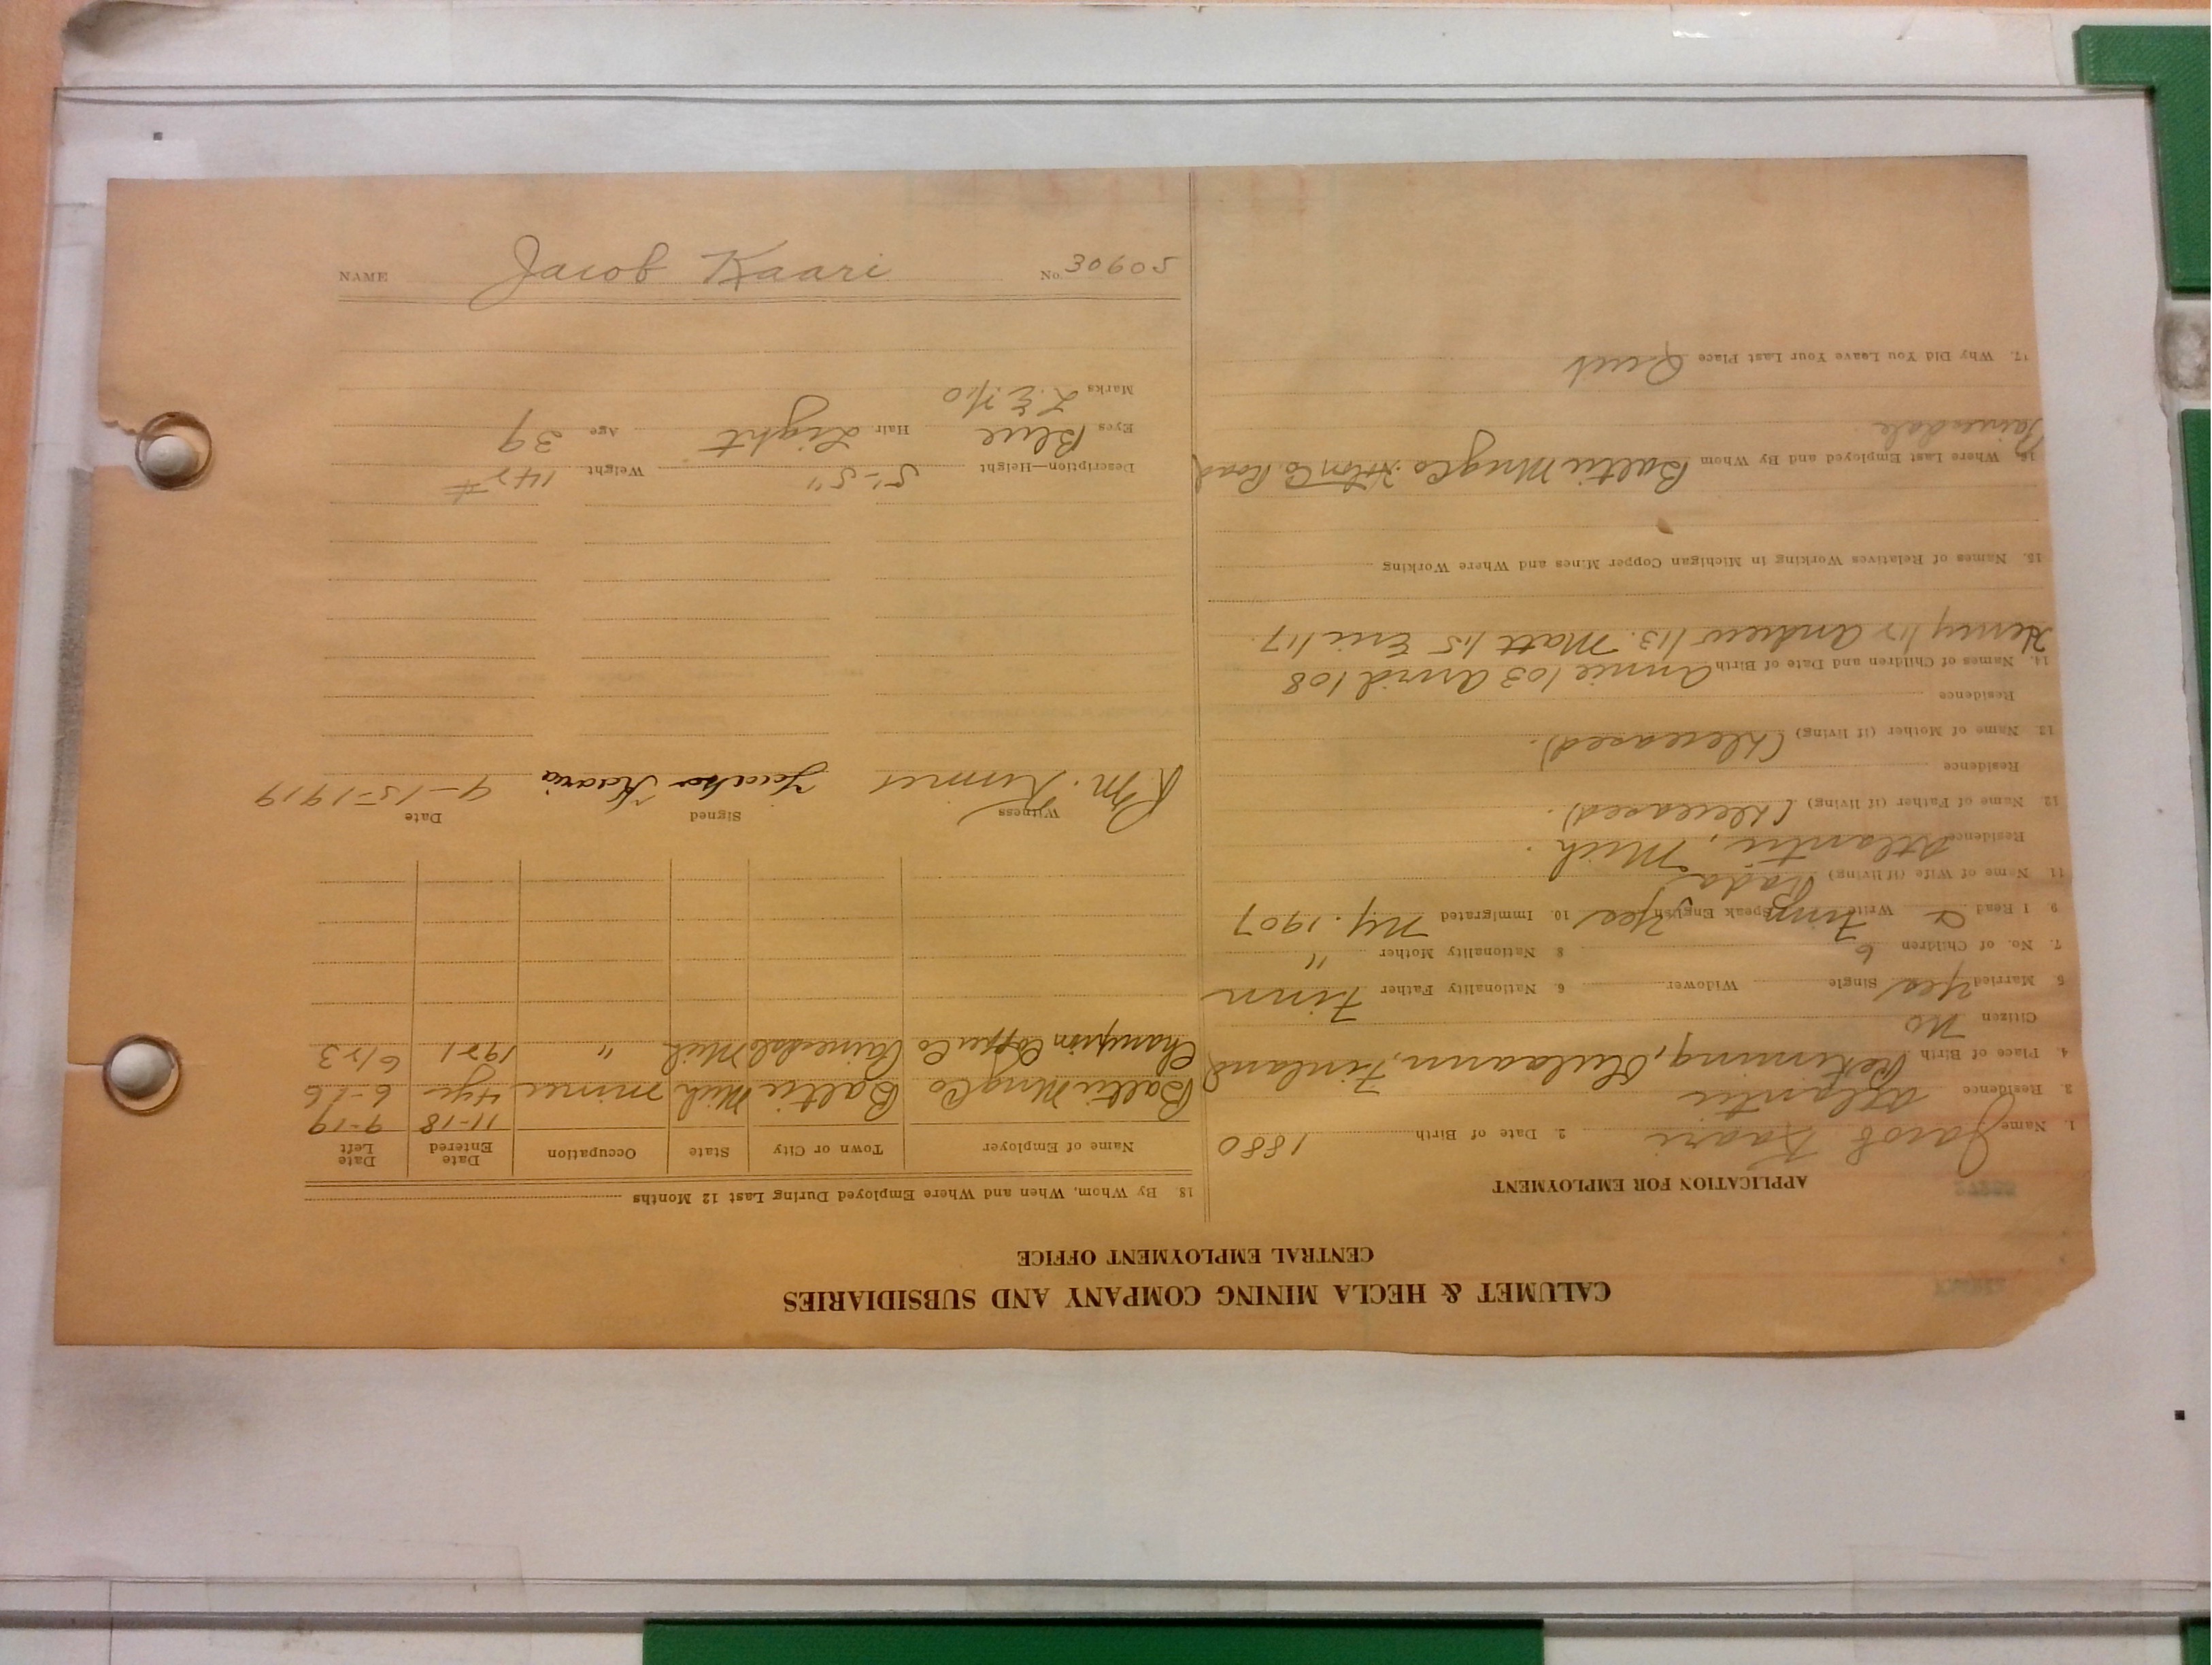 CALUMET & HECLA MINING COMPANY AND SUBSIDIARIES
CENTRAL EMPLOYMENT OFFICE
APPLICATION FOR EMPLOYMENT
1. Name Jacob Kaari 2. Date of Birth 1880
3. Residence Atlantic
4. Place of Birth Finland
Citizen No
5. Married Yes Single Widower 6 Nationality Father Finn
7. No. of Children 6 8 Nationality Mother "
9 I Read & Write Finn Speak English Yes 10. Immigrated NY. 1907
11. Name of Wife (if living)
Residence Atlantic, Mich.
12. Name of Father (if living) (Deceased).
Residence
13. Name of Mother (if living) (Deceased).
Residence
14. Names of Children and Date of Birth Annie 103 Arvid 108
Henry 112 Andrew 113. Matt 115 Eric 117.
15. Names of Relatives Working in Michigan Copper Mines and Where Working
16. Where Last Employed and By Whom Baltic Mng Co.
Painesdale
17. Why Did You Leave Your Last Place Quit
18. By Whom, When and Where Employed During Last 12 Months
Name of Employer Town or City State Occupation Date Entered Date Left
11-18 9-19
Baltic Mng Co Baltic Mich miner 4 yrs 6-16
Champion Copper Co Painesdale Mich " 1921 6/23
Witness Signed Date
R. M. 9-15-1919
Description—Height 5'-5" Weight 142 #
Eyes Blue Hair Light Age 39
Marks
NAME Jacob Kaari No. 30605